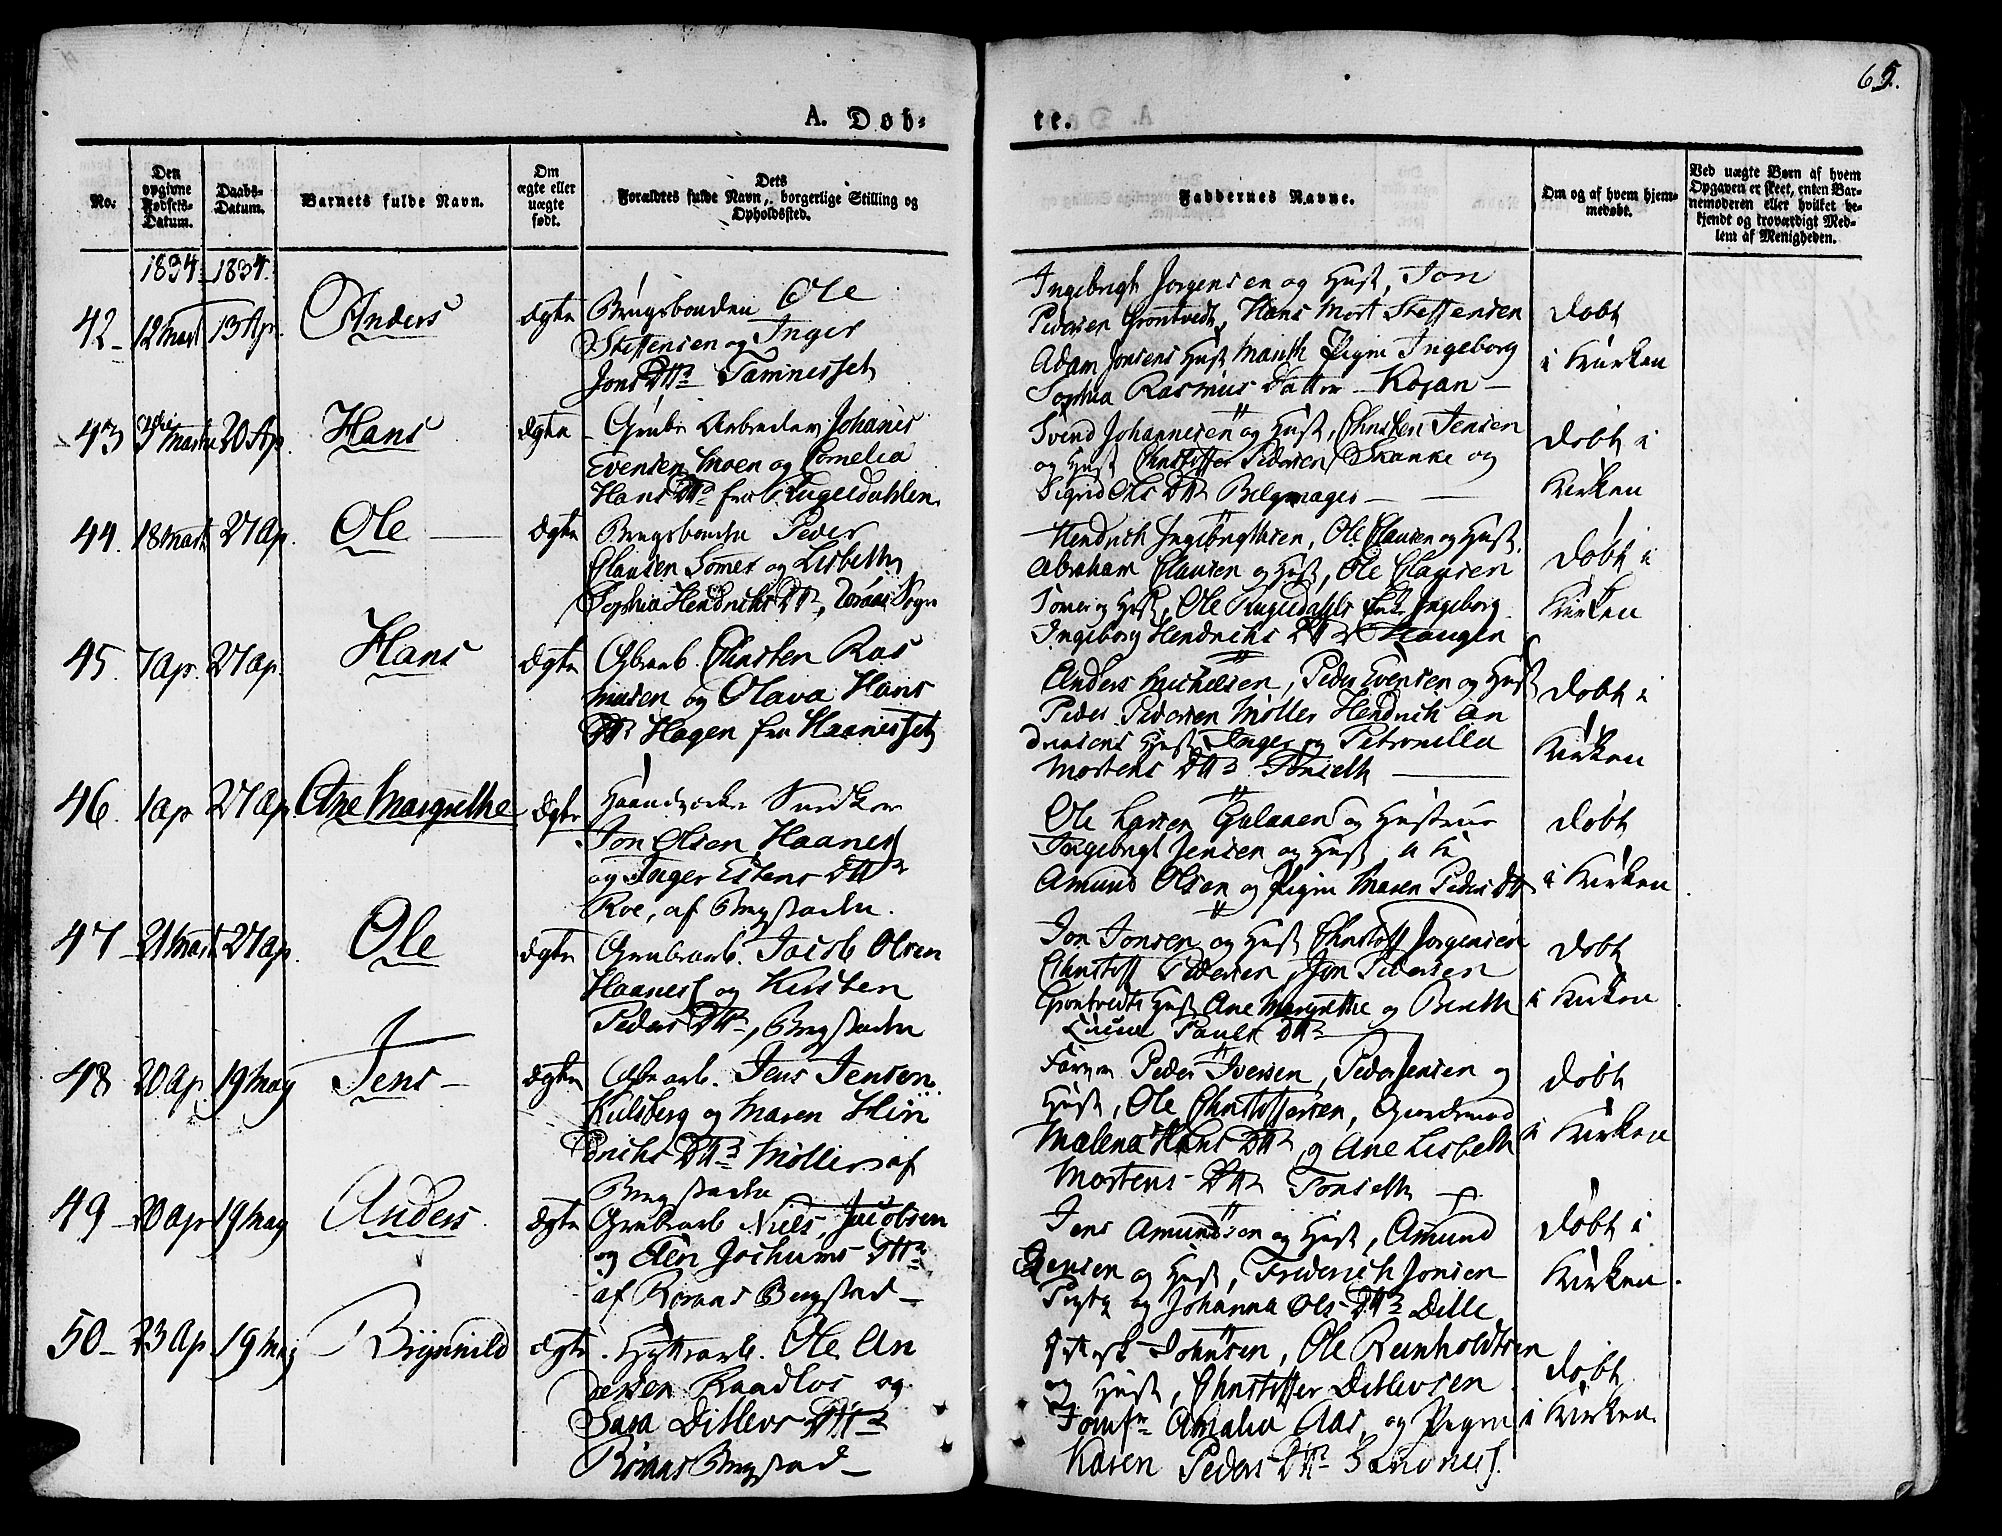 65.
A. Døb-
te.
No.
Den opgivne Fødsels-Datum.
Daabs-Datum.
Barnets fulde Navn.
Om ægte eller uægte født.
Dets Forældres fulde Navn, borgerlige Stilling og Opholdssted.
Faddernes Navne.
Om og af hvem hjemmedøbt.
Ved uægte Børn af hvem Opgaven er skeet, enten Barnemoderen eller hvilket bekjendt og troværdigt Medlem af Menigheden.
1834 1834.
42 12 Mart 13 Ap. Anders ægte Brugsbonden Ole
Steffensen og Inger
Jons Dtr Tamnesset
Ingebrigt Jorgensen og Hust, Jon
Pedersen Grontvedt, Hans Mort Steffensen
Adam Jonsens Hust Marith Pigen Ingeborg
Sophia Rasmus Datter Kojan
Døbt
i Kirken
43 Marti 20 Ap. Hans ægte Grube Arbeider Johanis
Evensen Moen og Cornelia
Hans Dtr fra Kugelsdahlen
Svend Johannesen og Hust, Christen Jensen
og Hust Christoffer Pedersen Skanke og
Sigrid Ols Dtr Belgmager
Døbt i
Kirken
44. 18 Mart 27 Ap. Ole ægte Brugsbonden Peder
Clausen Sømer og Lisbeth
Sophia Hendrichs Dtr, Sogn
Hendrich Ingebrigthsen, Ole Clausen og Hust,
Abraham Clausen og Hust, Ole Clausen
Sømer og Hust, Ole Kugelsdahls Enke Ingeborg
Ingeborg Hendrichs Dtr Haugen
Døbt i
Kirken
45. 7 Ap. 27 Ap. Hans ægte Gbrarb. Christen Ras
musen og Olava Hans
Dtr Hagen fra Haanesset
Anders Michelsen, Peder Evensen og Hust
Peder Pedersen Møller Hendrich An
dersens Hust Inger og Petronella
Mortens Dtr Tonseth
Døbt i
Kirken
46. 1 Ap 27 Ap. Ane Margrethe ægte Haandverker Snedker
Jon Olsen Haanes
og Inger Estens Dtr
Roe, af Bergstaden.
Ole Larsen Galaaen og Hustrue
Ingebrigt Jensen og Hust
Amund Olsen og Pigen Maren Peders Dtr
Døbt
i Kirken
47 21 Mart 27 Ap. Ole ægte Grubearb. Jacob Olsen
Haanes og Kirsten
Peders Dtr, Bergstaden
Jon Jonsen og Hust Christoff Jorgensen
Christoff Pedersen, Jon Pedersen
Grontvedts Hust Ane Margrethe og Berith
Pauls Dtr
Døbt
i Kirken
48 20 Ap. 19 May Jens ægte Gbrarb. Jens Jensen
Kulsberg og Maren Hin
drichs Dtr Møller af
Bergstaden
Peder Iversen, Peder Jensen og
Hust, Ole Christoffersen,
Malena Hans Dtr og Ane Lisbeth
Mortens Dtr Tonseth
Døbt
i Kirken
49 20 Ap 19 May Anders ægte Grubearb Niels Jacobsen
og Elen Jochums Dtr
af Røraas Bergstad
Jens Amundsen og Hust, Amund
Jensen og Hust, Frederich Jonsen
og Johanna Ols Dtr Dille
Døbt i
Kirken.
50 23 Ap 19 May Brynnild ægte Hytterarb. Ole An
dersen Raadlos og
Sara Ditlevs Dtr
Røraas Bergstad
Johnsen, Ole Reinholdtsen
og Hust, Christoffer Ditlevsen
Jomfr Amalia Aas, og Pigen
Karen Peders Dtr Sandnes.
Døbt
i Kirken